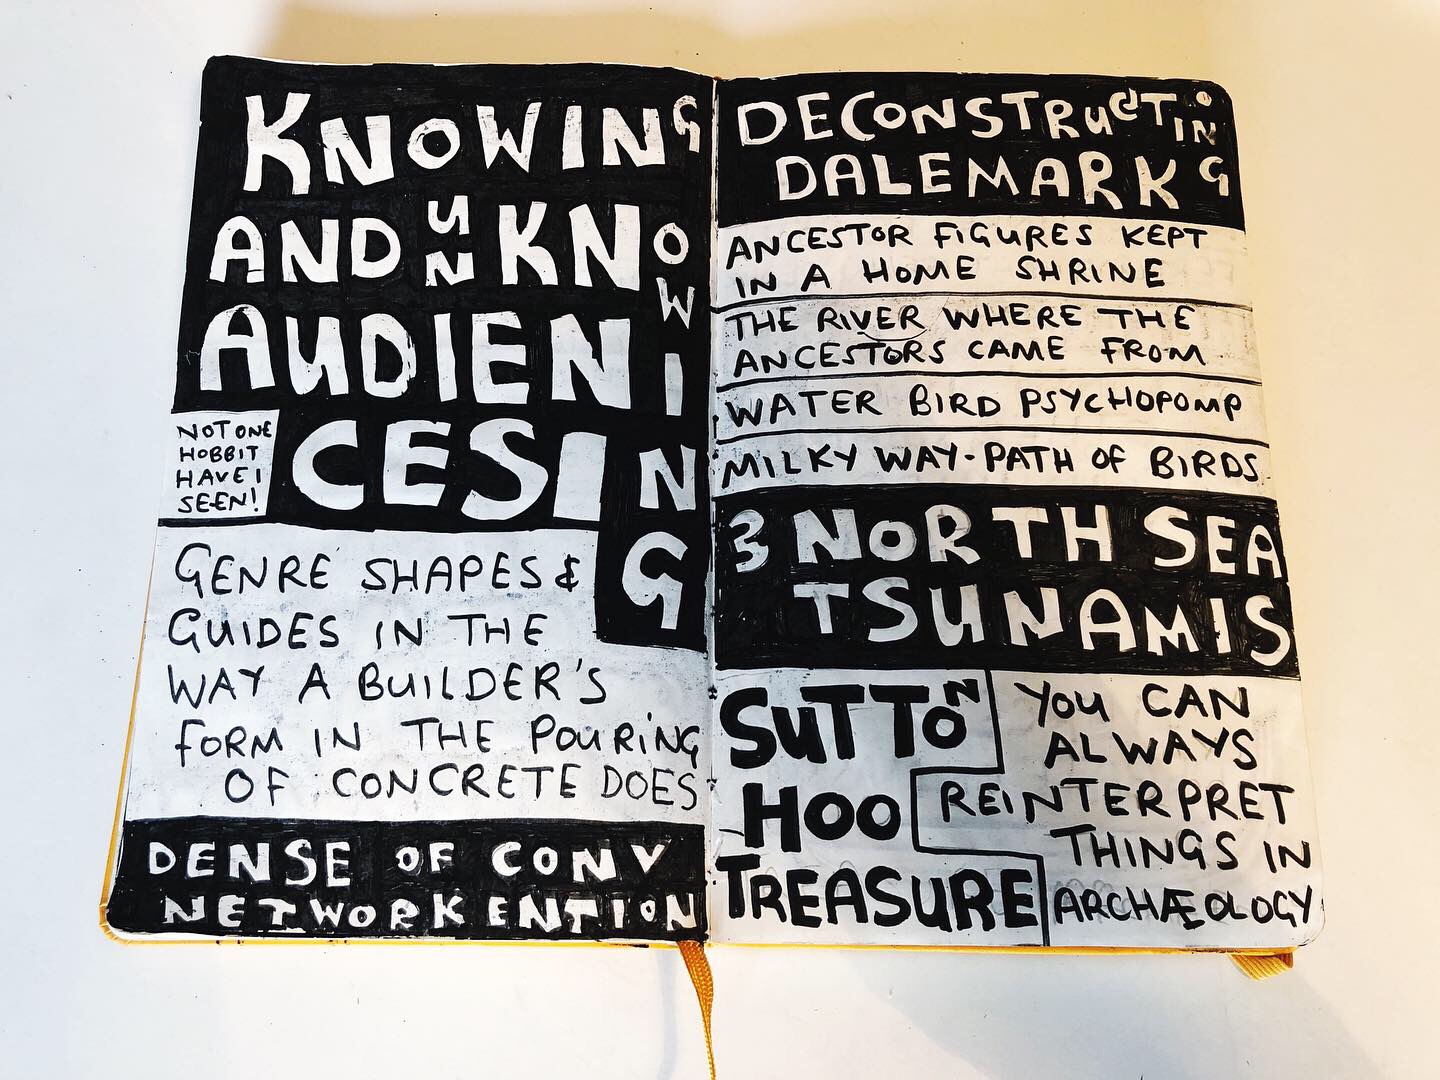 KNOWING
AND UNKNOWING
AUDIENCES
NOT ONE
HOBBIT
HAVE I
SEEN!
GENRE SHAPES &
GUIDES IN THE
WAY A BUILDER'S
FORM IN THE POURING
OF CONCRETE DOES
DENSE OF CONVENTION
NETWORK
DECONSTRUCTING
DALEMARK
ANCESTOR FIGURES KEPT
IN A HOME SHRINE
THE RIVER WHERE THE
ANCESTORS CAME FROM
WATER BIRD PSYCHOPOMP
MILKY WAY - PATH OF BIRDS
3 NORTH SEA
TSUNAMIS
SUTTON
HOO
TREASURE
YOU CAN
ALWAYS
REINTERPRET
THINGS IN
ARCHÆOLOGY